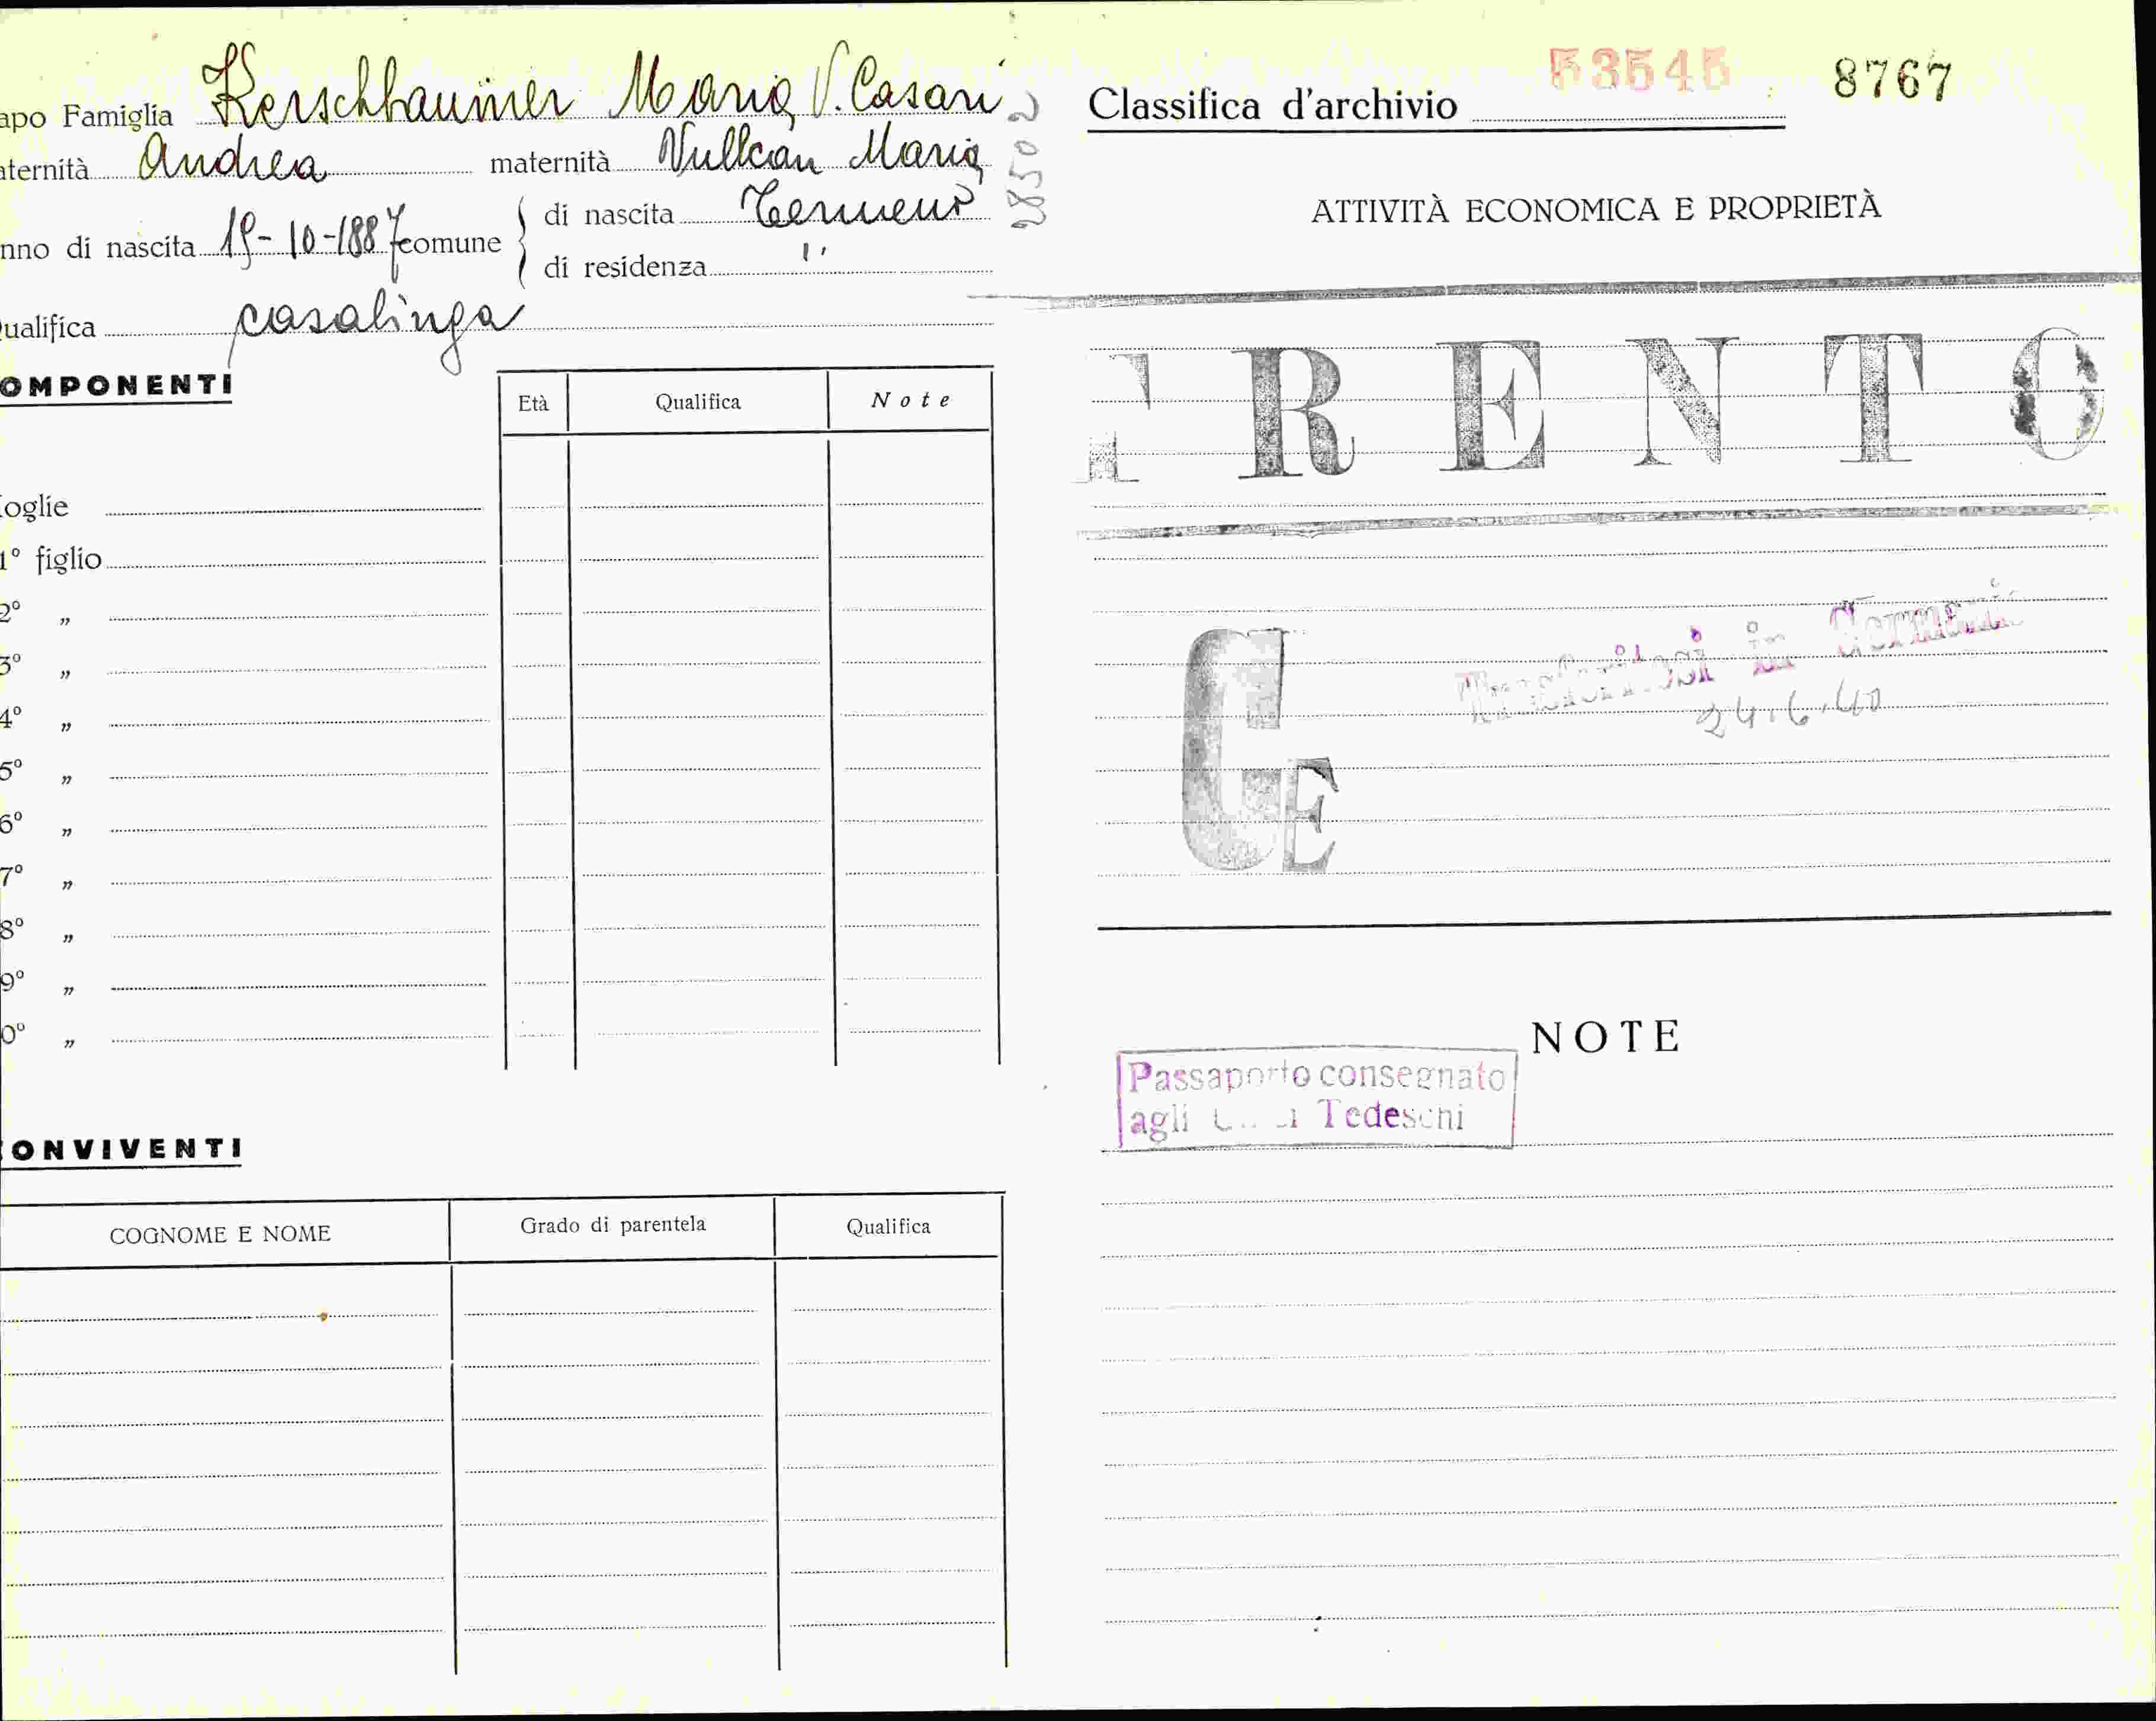 apo Famiglia Kerschbaumer Maria V. Casari
aternità Andrea maternità Vullcan Maria
nno di nascita 19-10-1887 comune di nascita Termeno
di residenza "
ualifica casalinga
OMPONENTI
Età Qualifica Note
oglie
1° figlio
2° "
3° "
4° "
5° "
6° "
7° "
8° "
9° "
0° "
ONVIVENTI
COGNOME E NOME Grado di parentela Qualifica
53545 8767
Classifica d'archivio
ATTIVITÀ ECONOMICA E PROPRIETÀ
TRENTO
CE
in
24.6.40
NOTE
Passaporto consegnato
agli Tedeschi